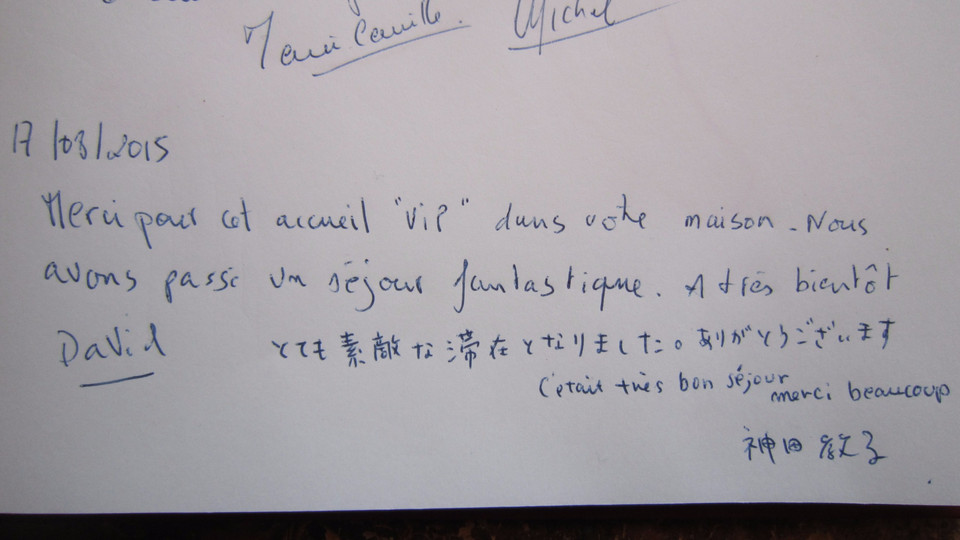 Michel
17/03/2015
Merci pour cet accueil "ViP" dans votre maison. Nous
avons passé un séjour fantastique. A très bientôt
David
とても素敵な滞在となりました。ありがとうございます
C'était très bon séjour merci beaucoup
神田